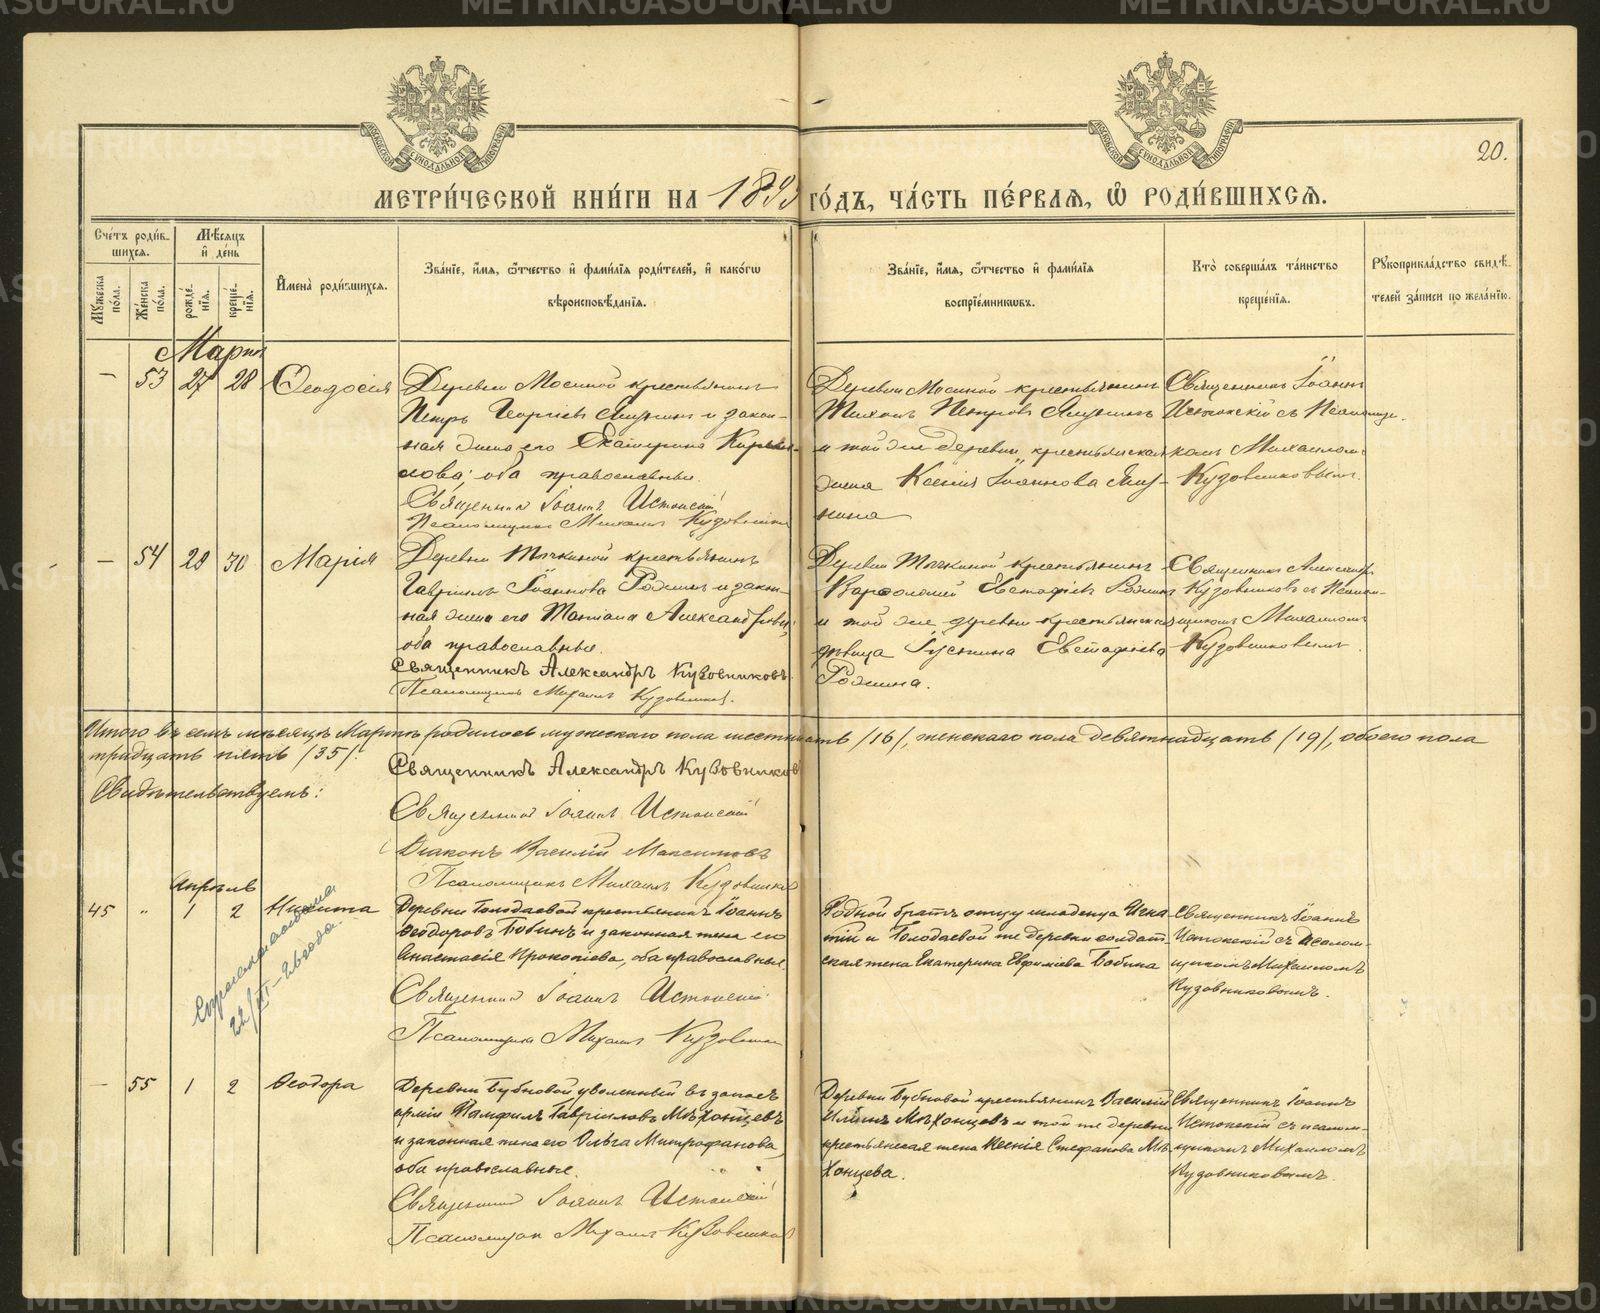 20.
МЕТРИ́ЧЕСКОЙ КНИ́ГИ НА 1893 ГО́ДЪ, ЧА́СТЬ ПЕ́РВАѦ, Ѡ҆ РОДИ́ВШИХСѦ.
Сче́тъ роди́в-
шихсѧ.
Мꙋжеска по́ла.
Же́нска по́ла.
Мѣ́сѧцъ
и҆ де́нь
рожде́-
нїѧ.
креще́-
нїѧ.
И҆мена̀ роди́вшихсѧ.
Зва́нїе, и҆́мѧ, ѻ҆́тчество и҆ фами́лїѧ роди́телей, и҆ како́гѡ
вѣроисповѣ́данїѧ.
Зва́нїе, и҆́мѧ, ѻ҆́тчество и҆ фами́лїѧ
воспрїе́мникѡвъ.
Кто̀ соверша́лъ та́инство
креще́нїѧ.
Рꙋкоприкла́дство свидѣ́-
телей за́писи по жела́нїю.
Мартъ
— 53 27 28 Ѳеодосія
Деревни Мосиной крестьянинъ
Петръ Георгіевъ и закон-
ная жена его Екатерина Кирил-
лова; оба православные.
Священникъ Іоаннъ Истокскій
Псаломщикъ Михаилъ Кузовниковъ
Деревни Мосиной крестьянинъ
Тихонъ Петровъ
и той же деревни крестьянская
жена Ксенія Іоаннова
Священникъ Іоаннъ
Истокскій съ Псаломщи-
комъ Михаиломъ
Кузовниковымъ.
— 54 28 30 Марія
Деревни крестьянинъ
Гавріилъ Іоанновъ Рожинъ и закон-
ная жена его Татіана Александрова;
оба православные.
Священникъ Александръ Кузовниковъ.
Псаломщикъ Михаилъ Кузовниковъ.
Деревни крестьянинъ
Варѳоломей Евстафіевъ Рожинъ
и той же деревни крестьянская
дѣвица Іустина Евстафіева
Рожина.
Священникъ Александръ
Кузовниковъ съ Псалом-
щикомъ Михаиломъ
Кузовниковымъ.
Итого въ семъ мѣсяцѣ Мартѣ родилось мужескаго пола шестнадцать /16/, женскаго пола девятнадцать /19/, обоего пола
тридцать пять /35/.
Священникъ Александръ Кузовниковъ
Свидѣтельствуемъ:
Священникъ Іоаннъ Истокскій
Діаконъ Василій Максимовъ
Псаломщикъ Михаилъ Кузовниковъ
Апрѣль
45 „ 1 2 Никита
Деревни Голодаевой крестьянинъ Іоаннъ
Ѳеодоровъ Бобинъ и законная жена его
Анастасія Прокопіева, оба православные.
Священникъ Іоаннъ Истокскій
Псаломщикъ Михаилъ Кузовниковъ
Родной братъ отцу младенца Игна-
тій и Голодаевой же деревни солдат-
ская жена Екатерина Евфиміева Бобина
Священникъ Іоаннъ
Истокскій съ Псалом-
щикомъ Михаиломъ
Кузовниковымъ.
22/III-26 года.
— 55 1 2 Ѳеодора
Деревни Бубновой уволенный въ запасъ
арміи Памфилъ Гавріиловъ Мѣхонцевъ
и законная жена его Ольга Митрофанова,
оба православные.
Священникъ Іоаннъ Истокскій
Псаломщикъ Михаилъ Кузовниковъ
Деревни Бубновой крестьянинъ Василій
Ильинъ Мѣхонцевъ и той же деревни
крестьянская жена Ксенія Стефанова Мѣ-
хонцева.
Священникъ Іоаннъ
Истокскій съ псалом-
щикомъ Михаиломъ
Кузовниковымъ.
METRIKI.GASO-URAL.RU